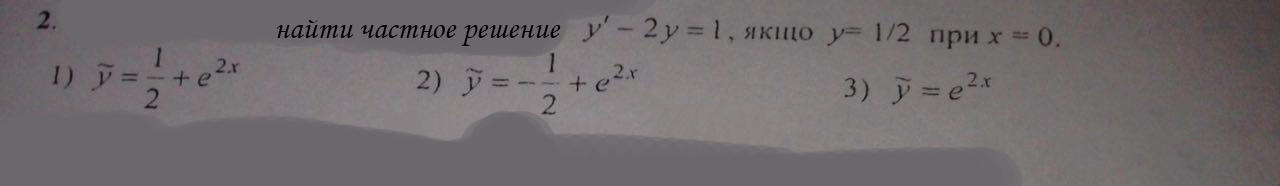 2. найти частное решение y′ − 2y = 1, якщо y= 1/2 при x = 0.
1) ỹ = 1/2 + e^{2x} 2) ỹ = −1/2 + e^{2x} 3) ỹ = e^{2x}